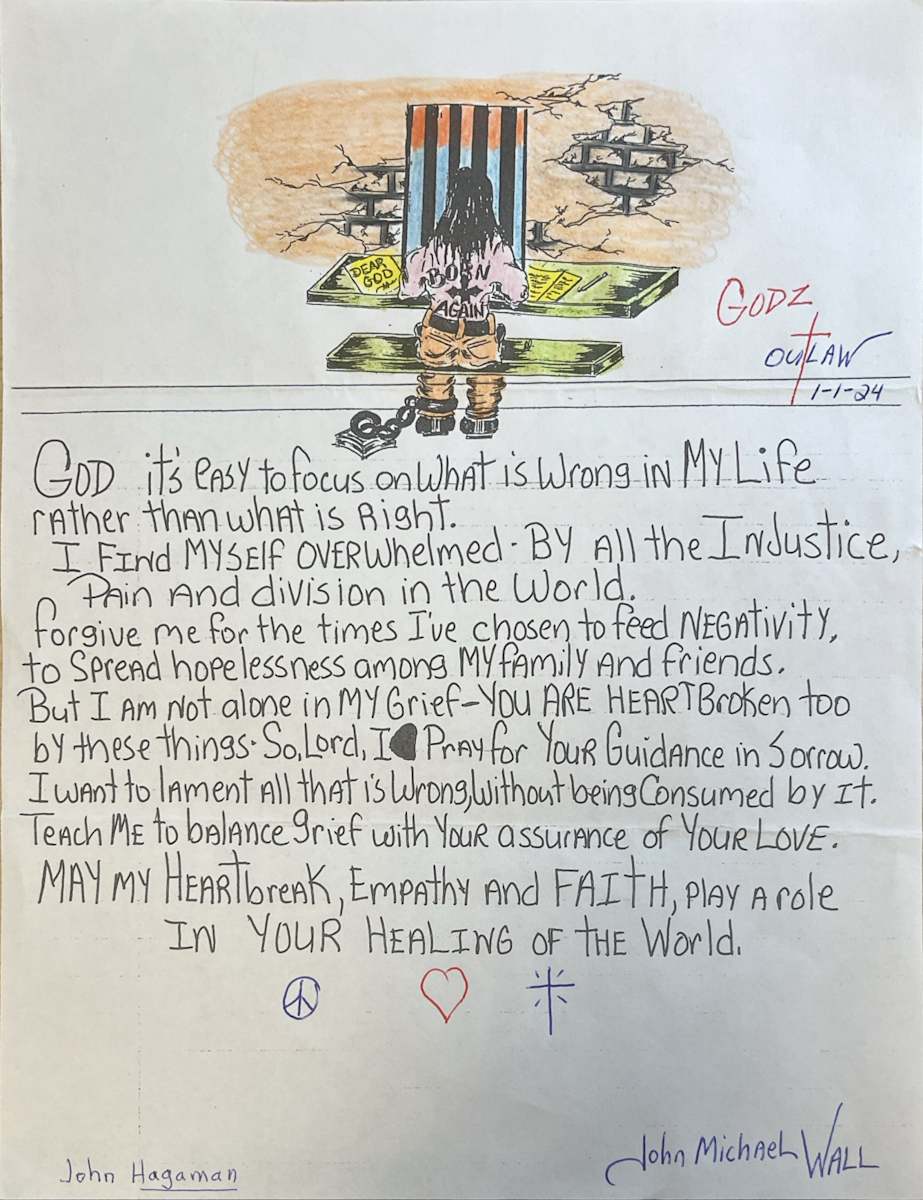 DEAR
GOD
BORN
AGAIN
GODZ
OUTLAW
1-1-24
GOD it's easy to focus on what is wrong in My Life
rather than what is Right.
I Find Myself overwhelmed - By all the Injustice,
Pain and division in the World.
forgive me for the times I've chosen to feed NEGAtivity,
to Spread hopelessness among My family and friends.
But I am not alone in My Grief - YOU ARE HEARTBroken too
by these things. So, Lord, I Pray for Your Guidance in Sorrow.
I want to lament all that is Wrong, Without being Consumed by It.
Teach Me to balance grief with Your assurance of YOUR LOVE.
MAY MY HEARTbreak, Empathy and FAITH, play a role
IN YOUR HEALING OF THE World.
John Hagaman
John Michael WALL